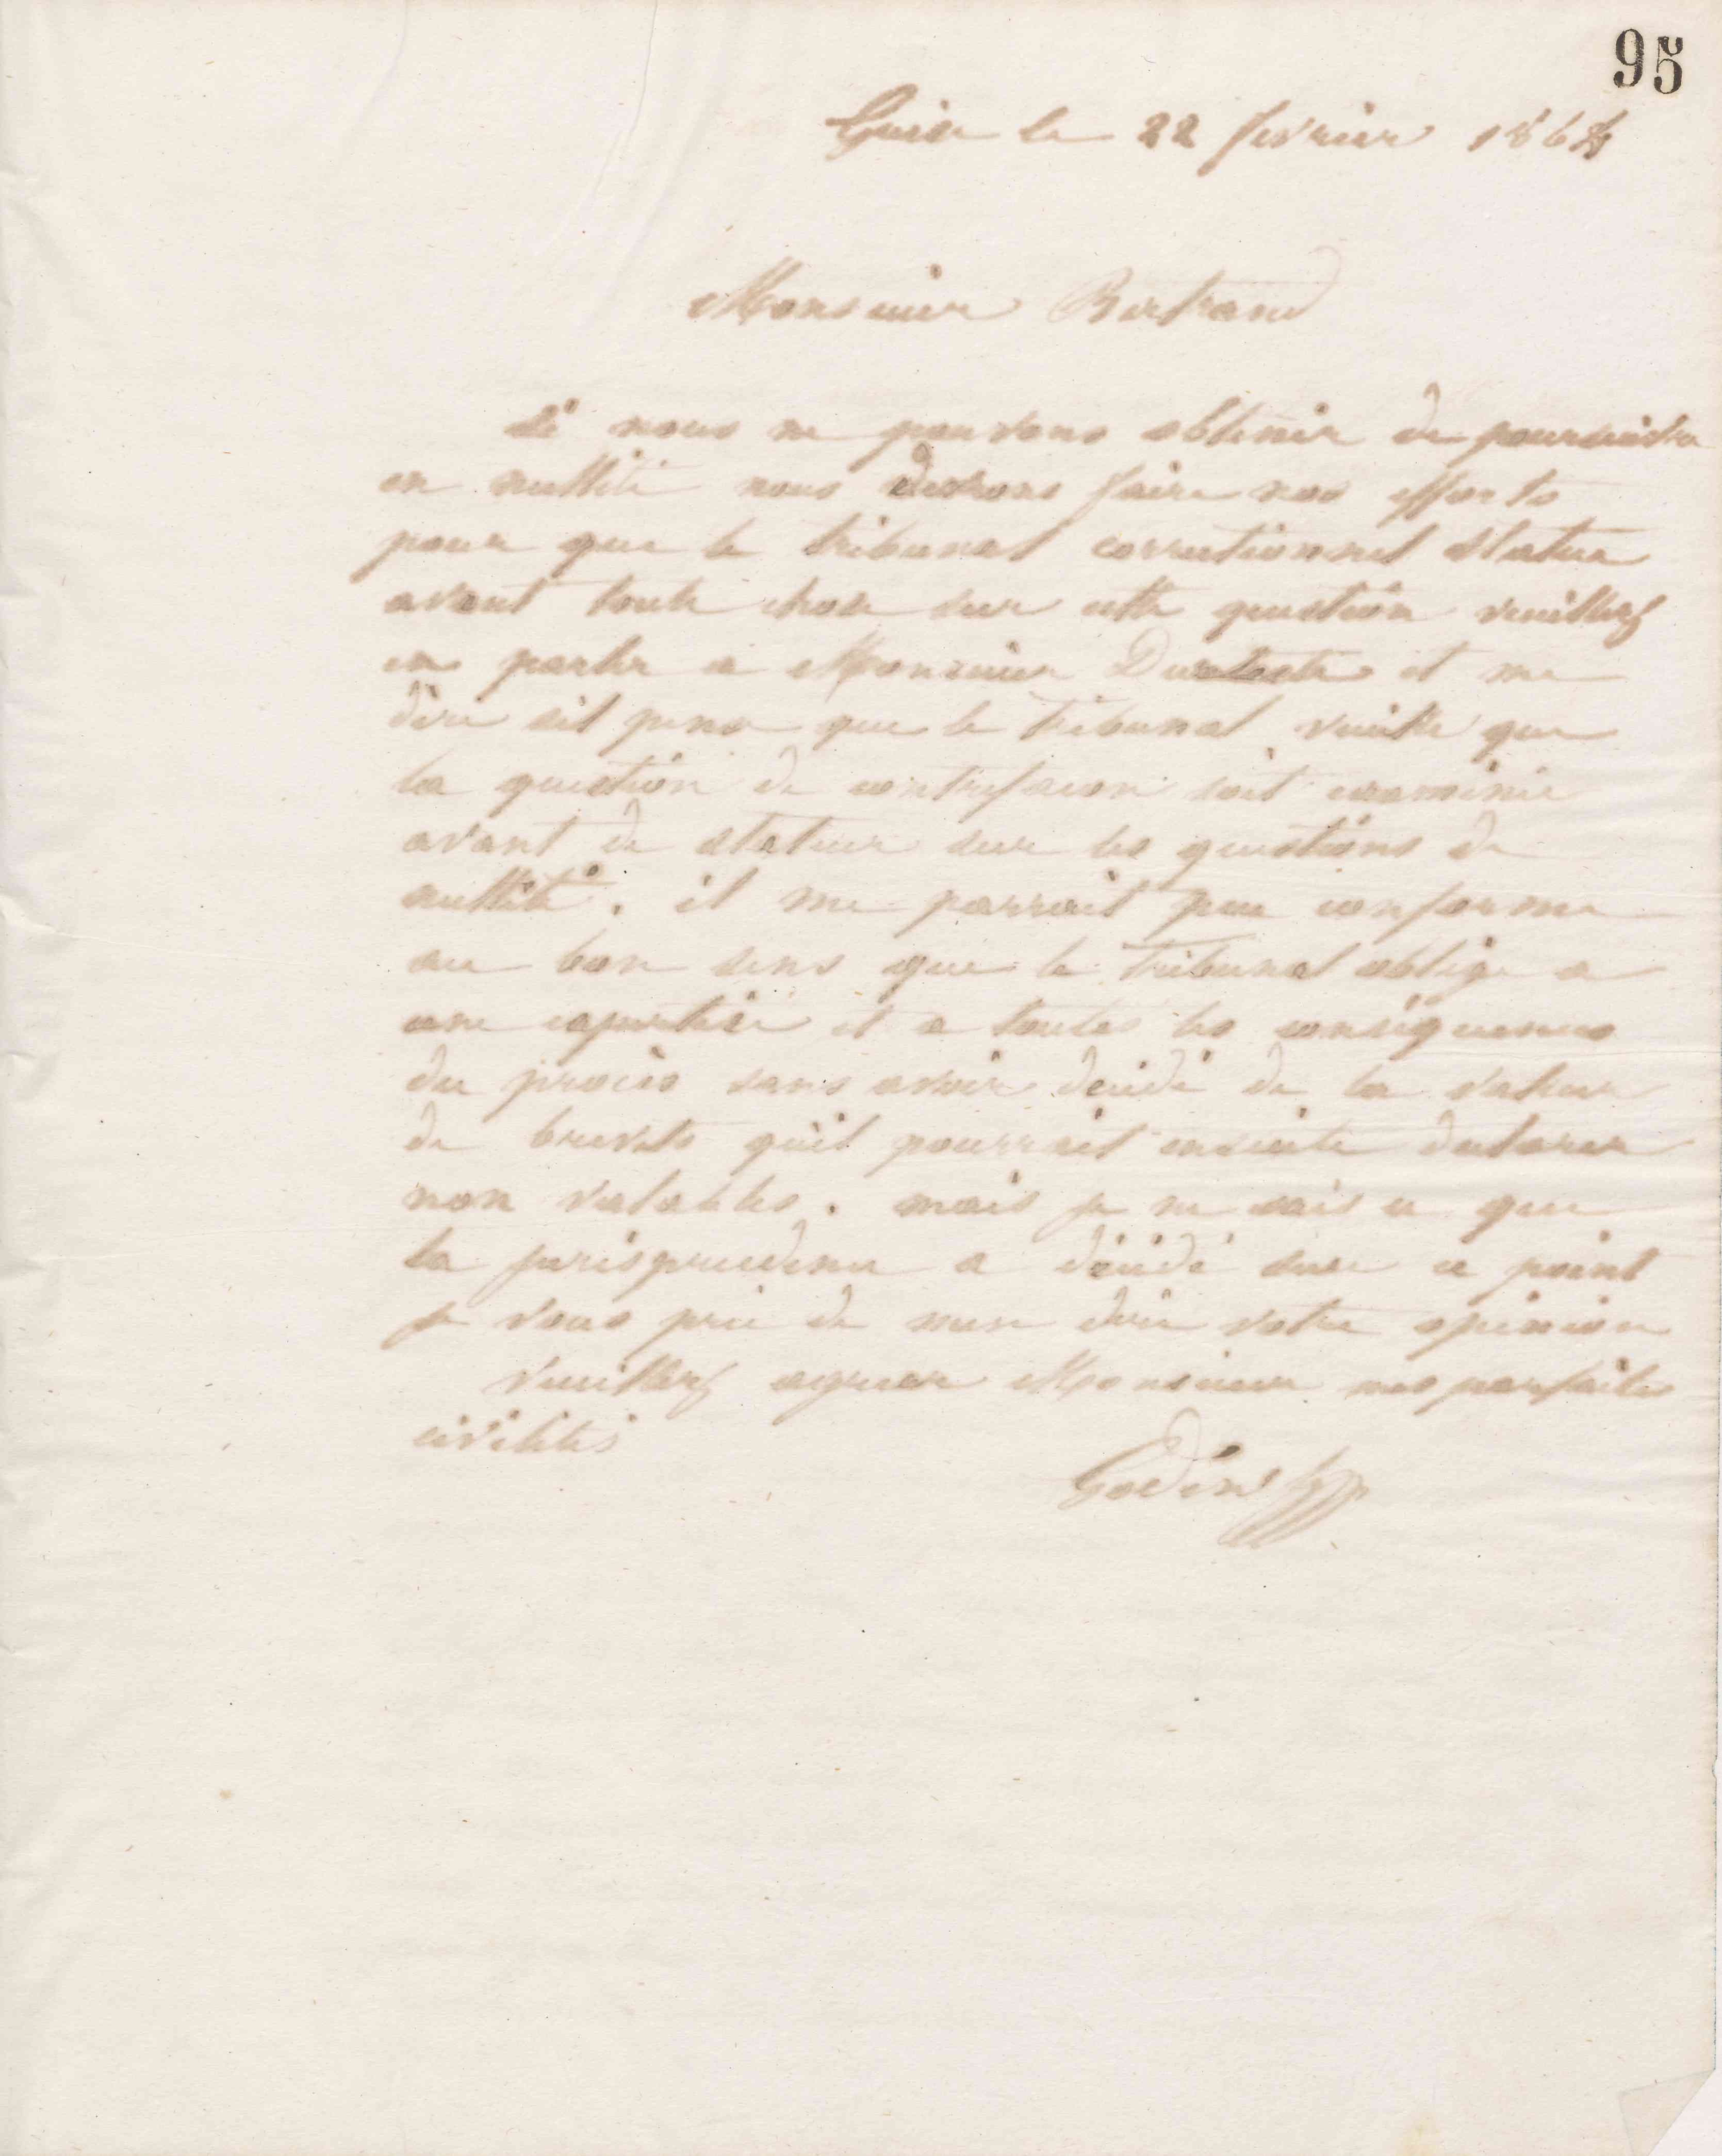 95
Guise le 22 fevrier 186
Monsieur Bertrand
Si nous ne pouvons obtenir de poursuivre
en nullité nous devrons faire nos efforts
pour que le tribunal correctionnel statue
avant toute chose sur cette question veuillez
en parler a Monsieur et me
dire sil pense que le tribunal veuille que
la question de contrefacon soit examinée
avant de statuer sur les questions de
nullité. il me parrait peu conforme
au bon sens que le tribunal oblige a
une expertise et a toutes les conséquences
du procès sans avoir decidé de la valeur
de brevets qu'il pourrait ensuite declarer
non valables. mais je ne sais ce que
la jurisprudence a décidé sur ce point
je vous prie de men dire votre opinion
Veuillez agreer Monsieur mes parfaites
civilités
Godin